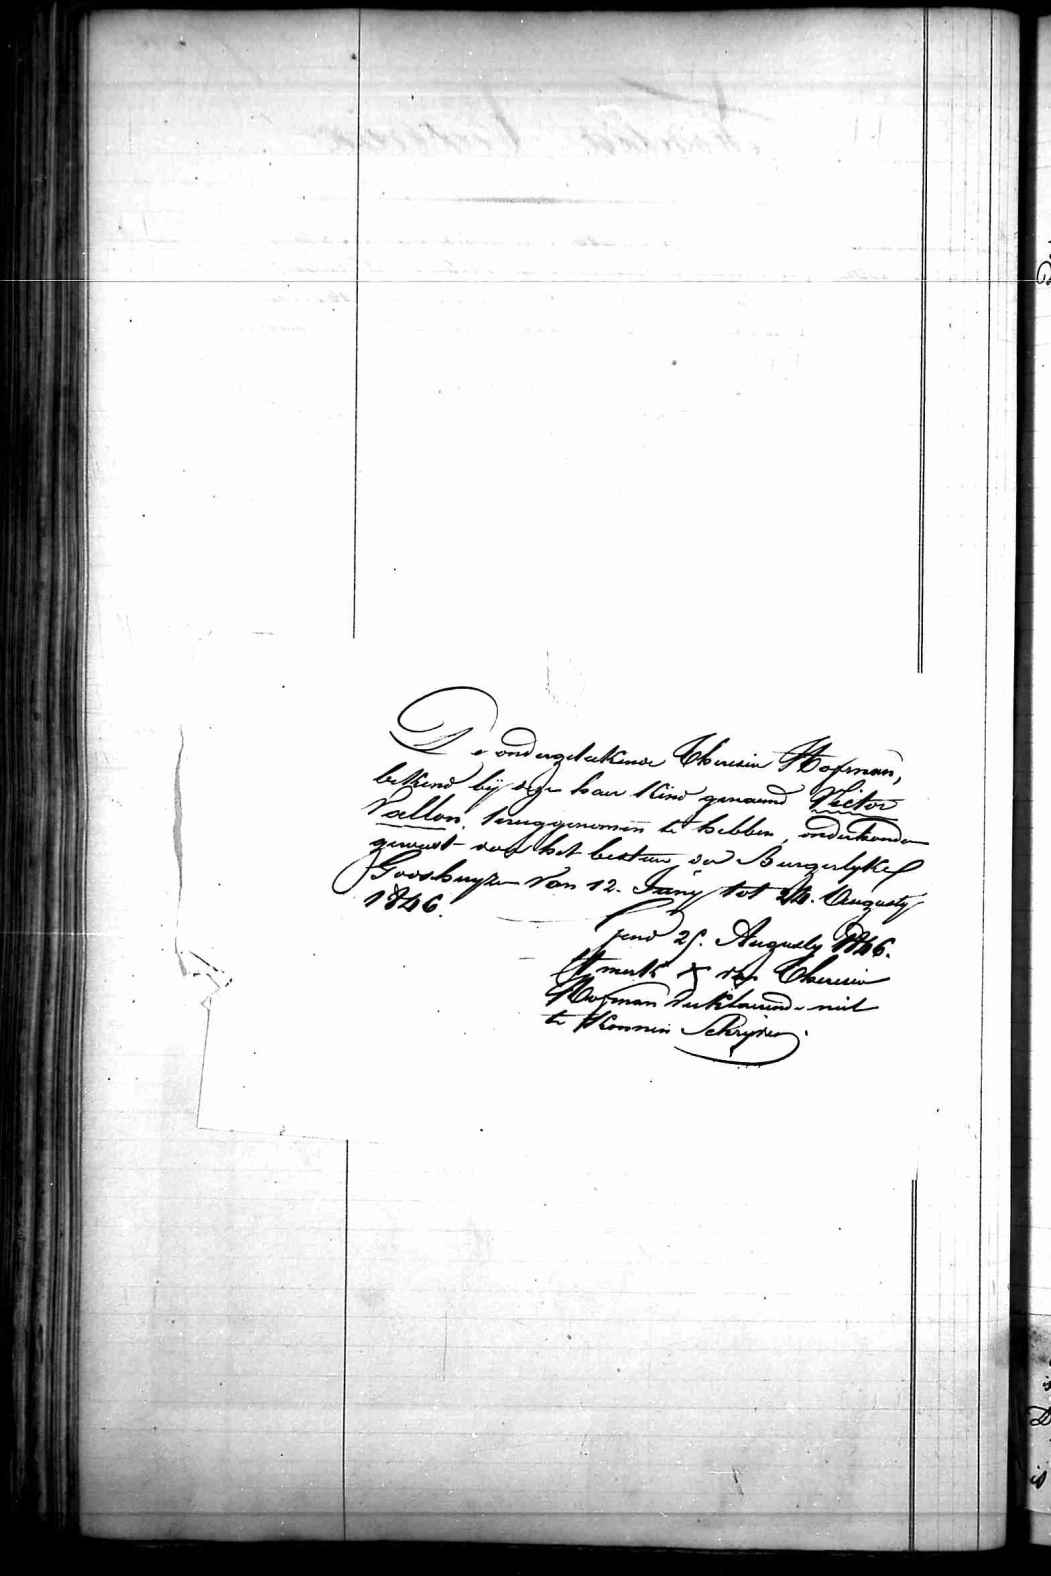 De ondergeteekende Theresia Hofman,
bekend bij deze haer Kind genaemd Victor
Vallon, teruggenomen te hebben, onderhouden
geweest door het bestuer der Burgerlyke
Godshuyzen van 12. Juny tot 24. Augusty
1846.
Gend 25. Augusty 1846.
Het merk X van Theresia
Hofman verklarende niet
te Konnen Schryven.